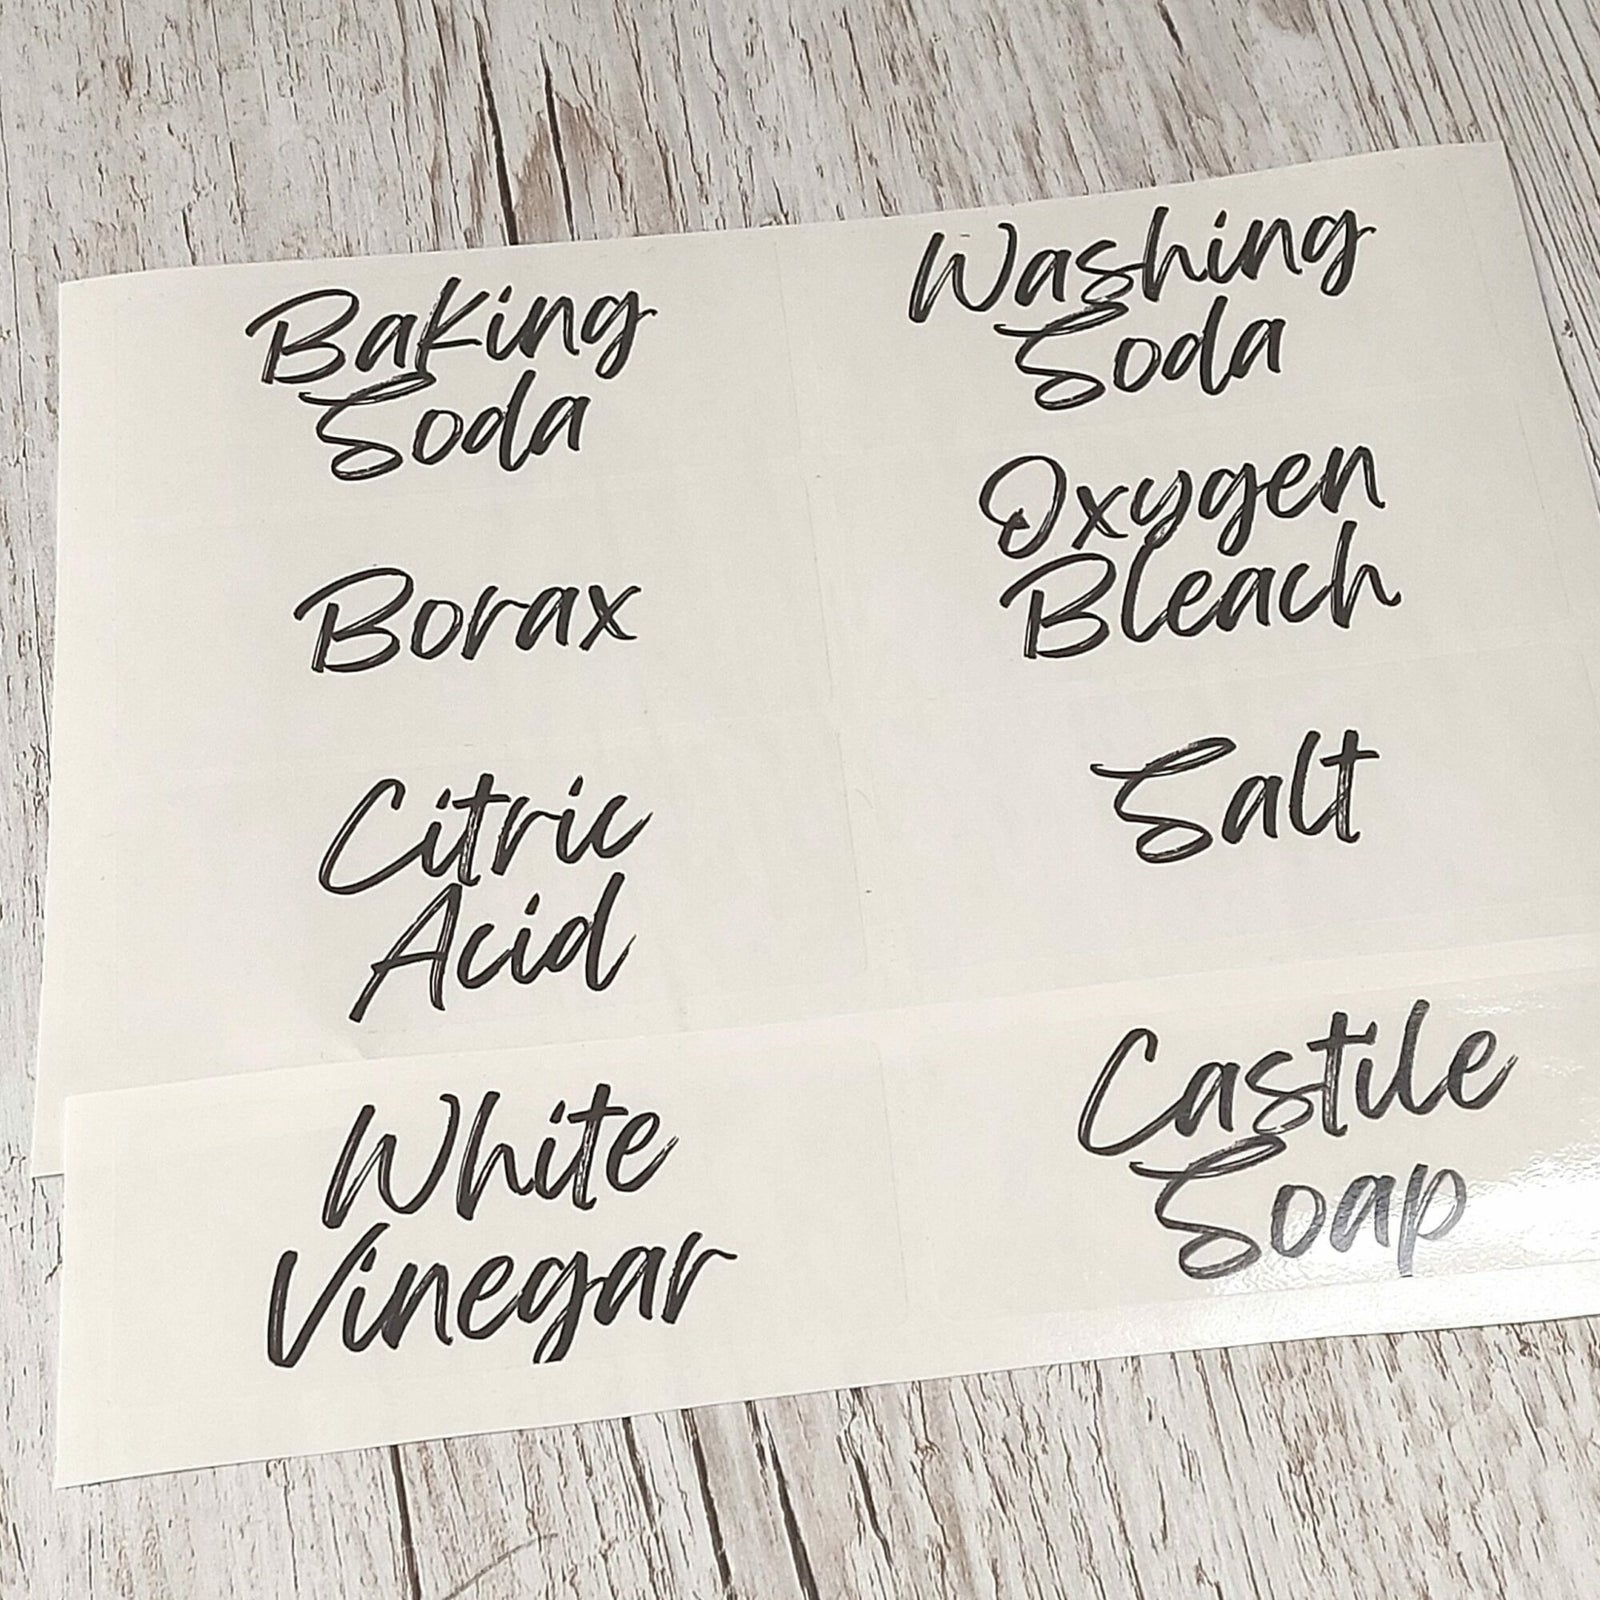 Baking
Soda
Washing
Soda
Borax
Oxygen
Bleach
Citric
Acid
Salt
White
Vinegar
Castile
Soap